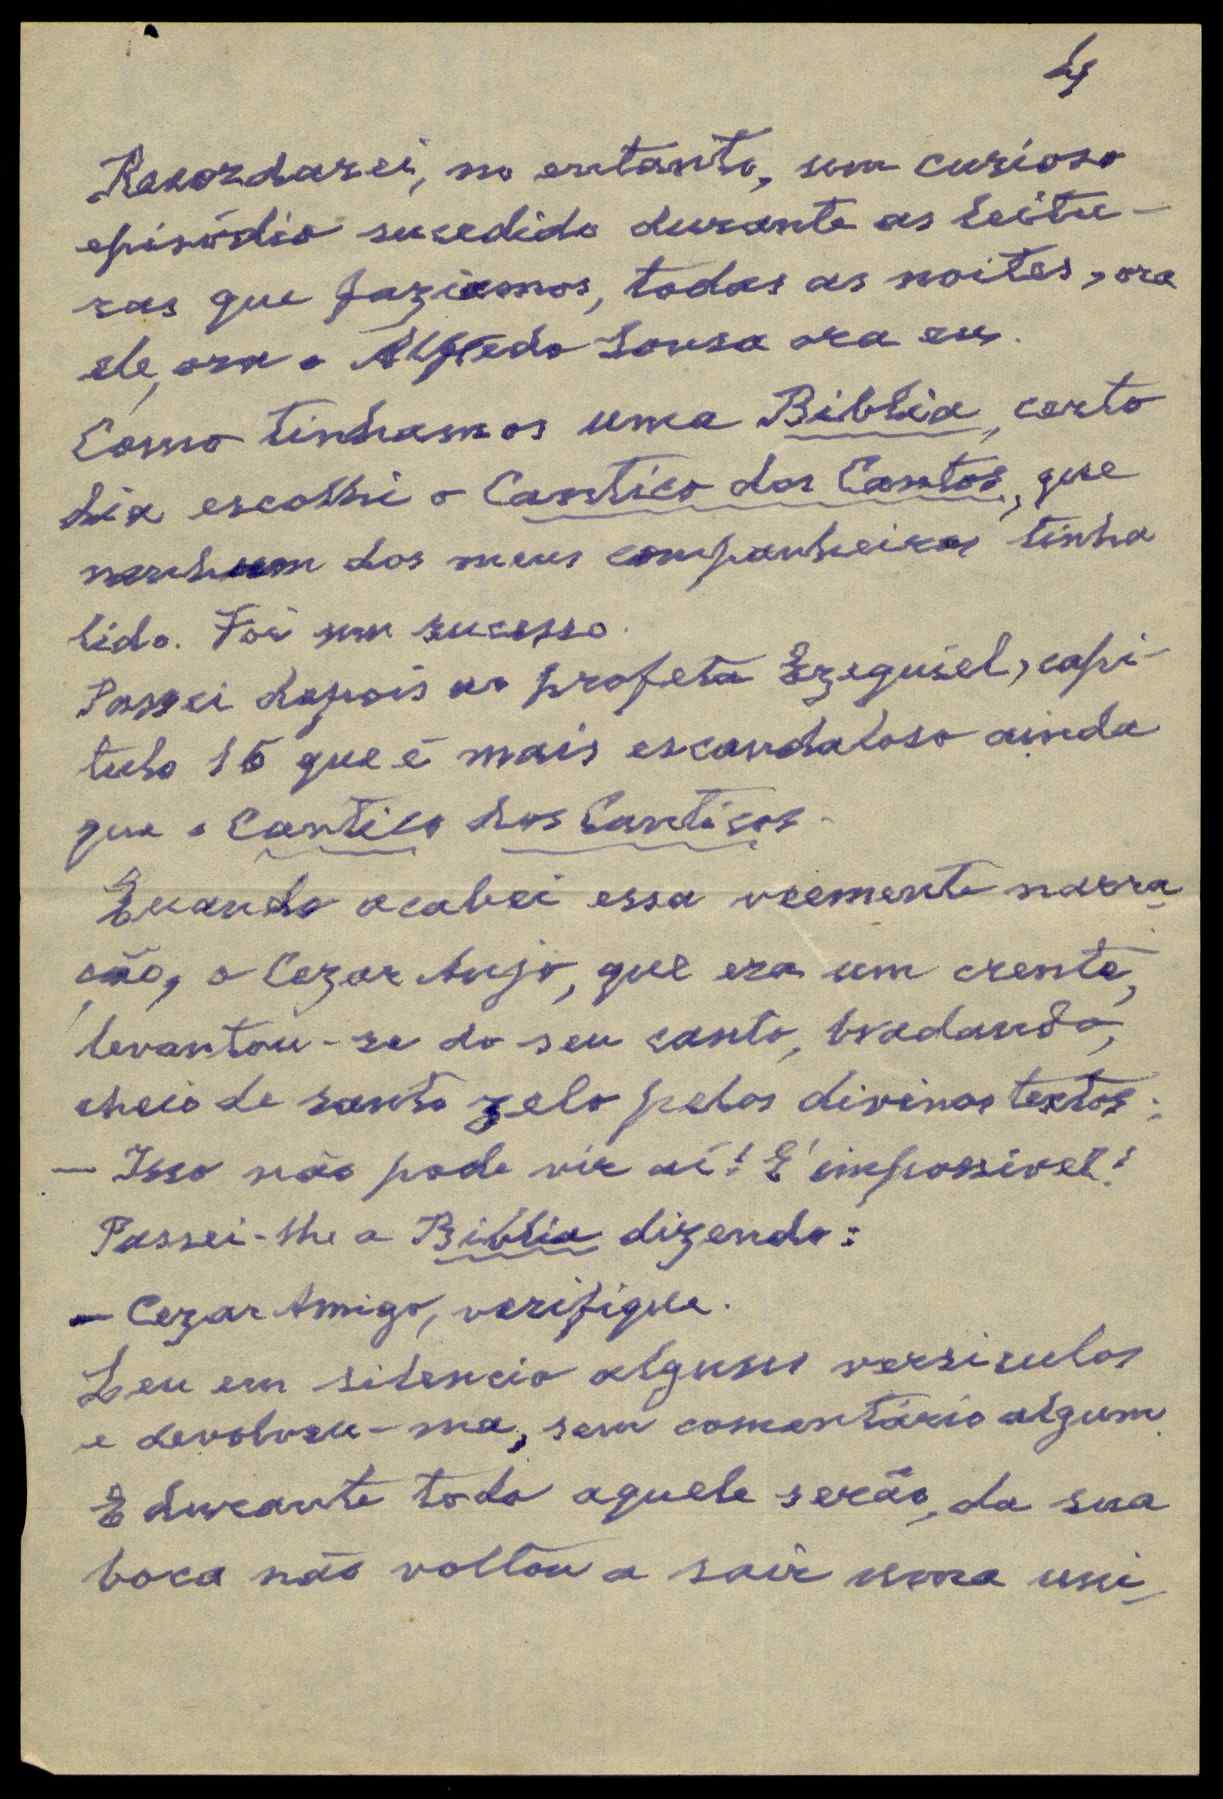 4
Recordarei, no entanto, um curioso
episódio sucedido durante as leitu-
ras que faziamos, todas as noites, ora
ele, ora o Alfredo Sousa ora eu.
Como tinhamos uma Biblia, certo
dia escolhi o Cantico dos Cantos, que
nenhum dos meus companheiros tinha
lido. Foi um sucesso.
Passei depois ao profeta Ezequiel, capi-
tulo 16 que é mais escandaloso ainda
que o Cantico dos Canticos.
Quando acabei essa veemente narra-
ção, o Cezar Anjo, que era um crente,
levantou-se do seu canto, bradando,
cheio de santo zelo pelos divinos textos:
— Isso não pode vir aí! E' impossivel!
Passei-lhe a Biblia dizendo:
— Cezar Amigo, verifique.
Leu em silencio alguns versiculos
e devolveu-ma, sem comentário algum.
E durante todo aquele serão, da sua
boca não voltou a sair uma uni-